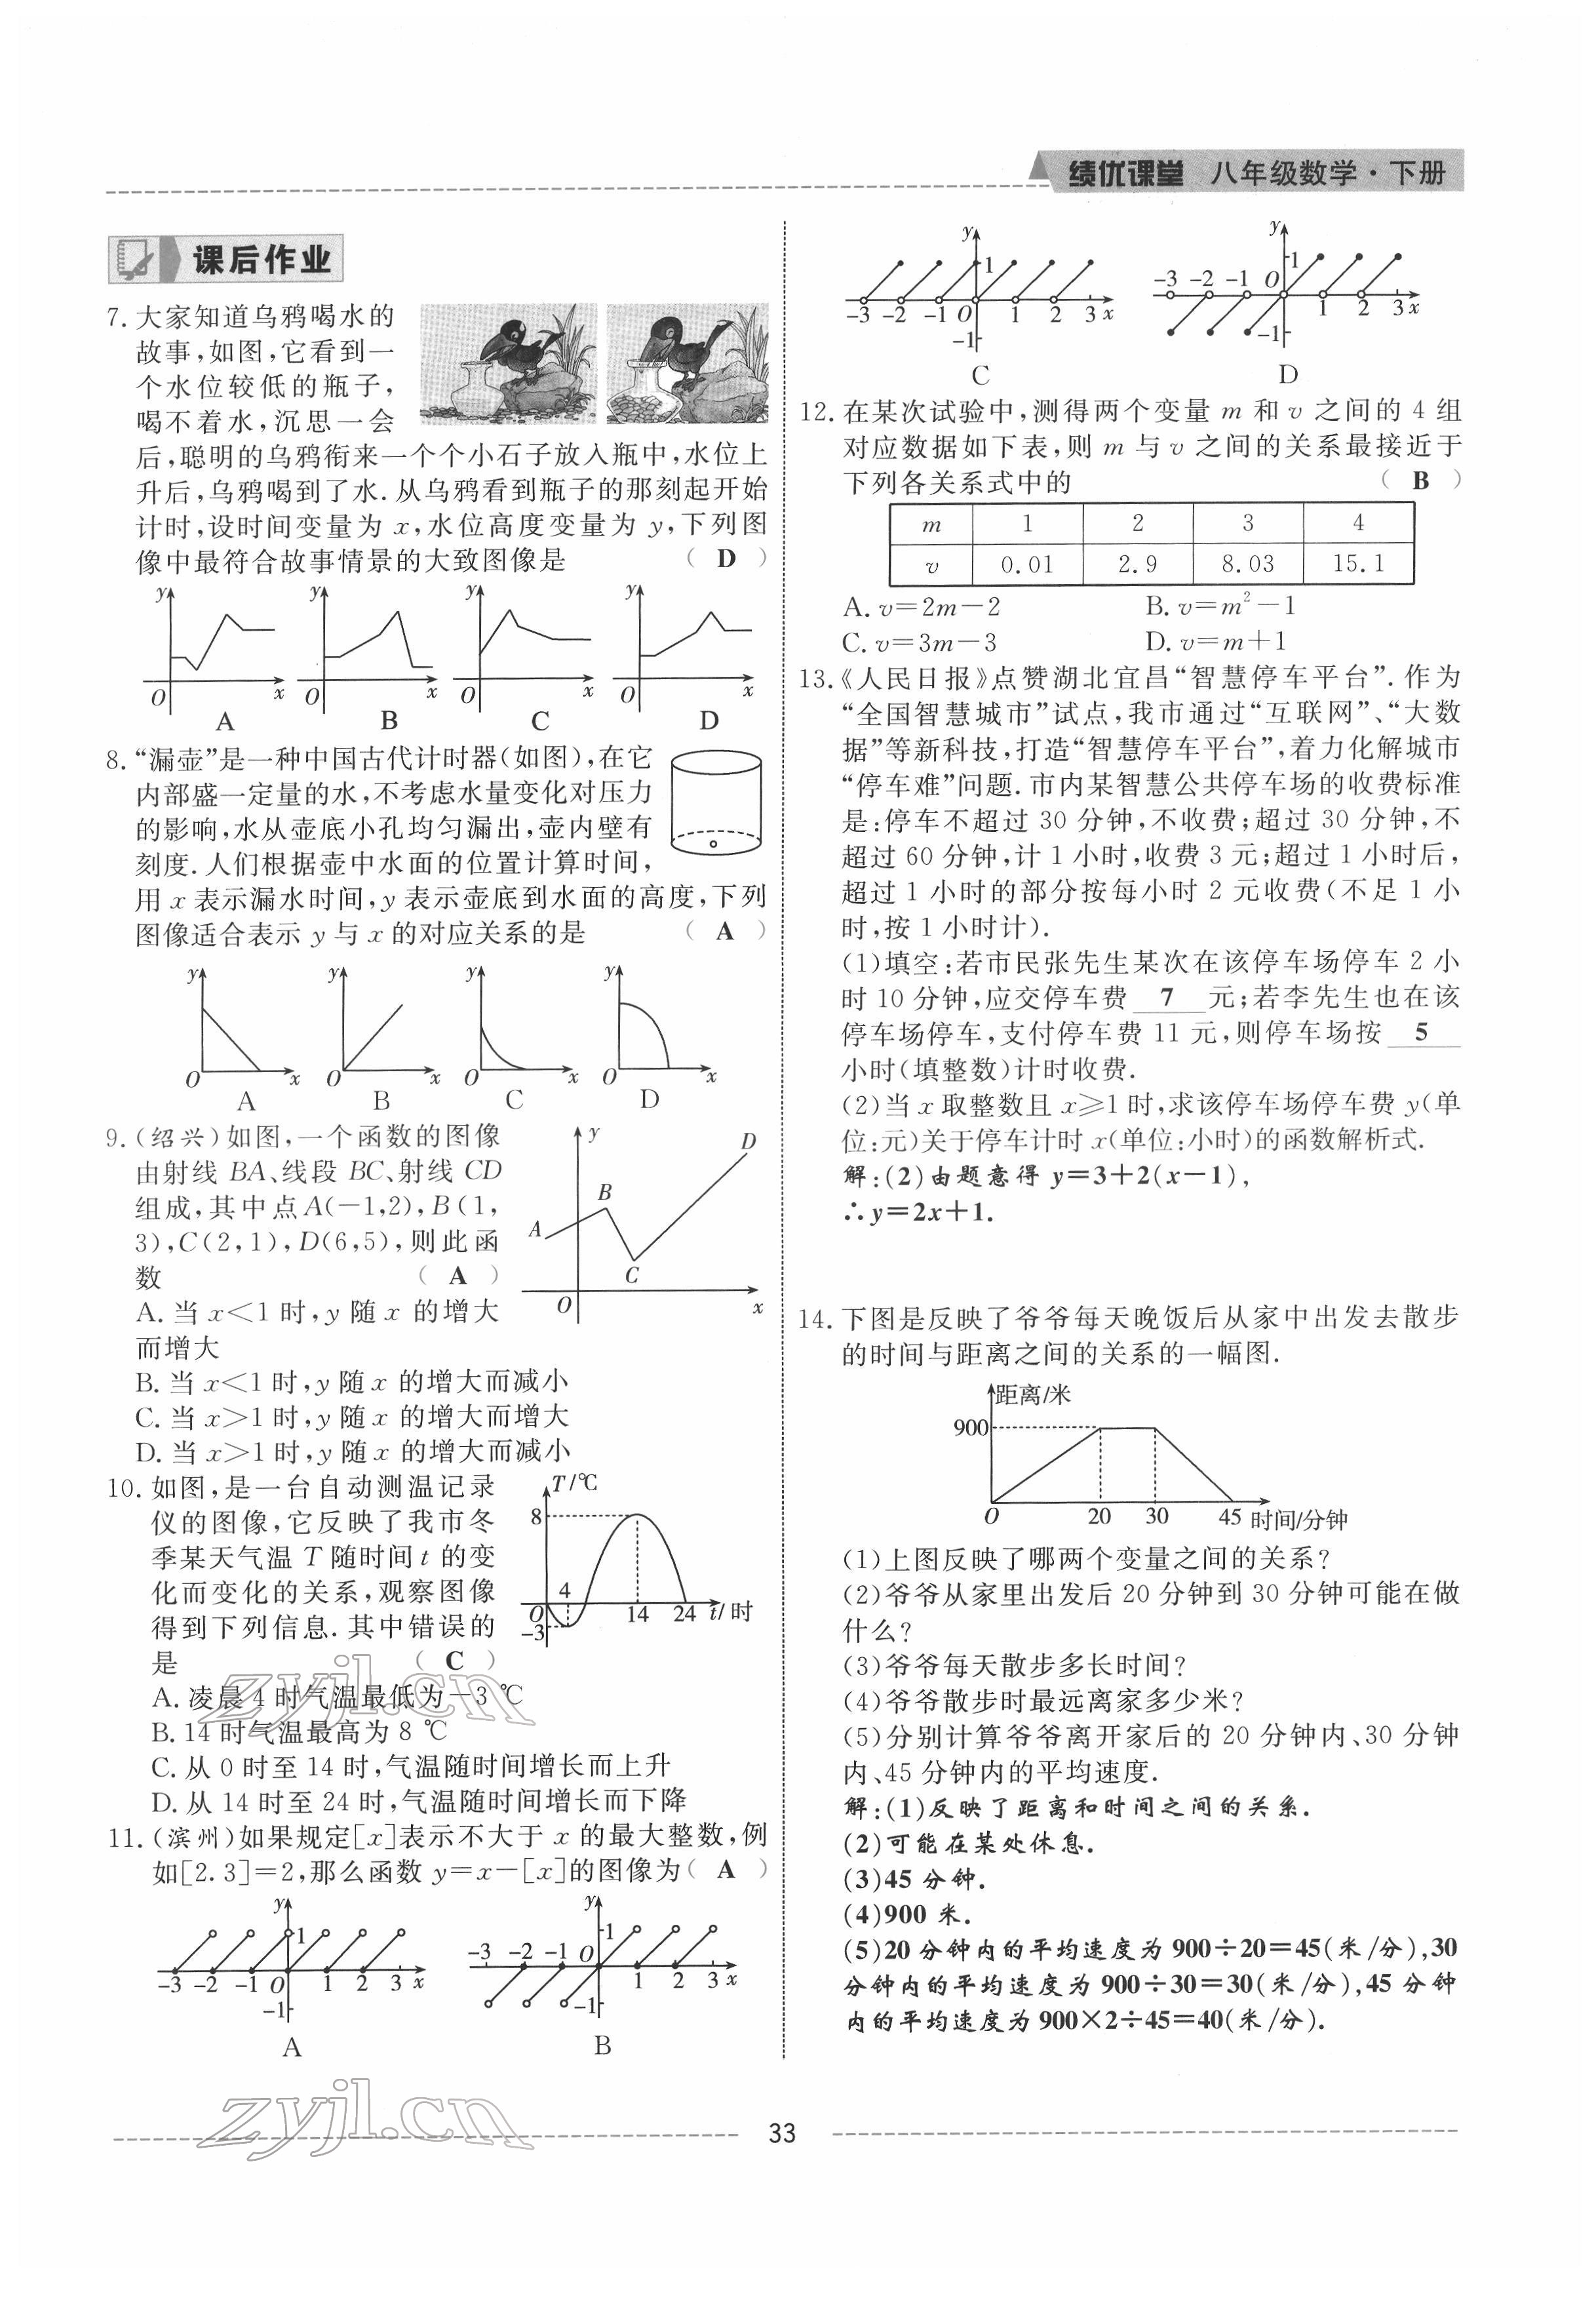 绩优课堂 八年级数学·下册
课后作业
7. 大家知道乌鸦喝水的
故事,如图,它看到一
个水位较低的瓶子,
喝不着水,沉思一会
后,聪明的乌鸦衔来一个个小石子放入瓶中,水位上
升后,乌鸦喝到了水.从乌鸦看到瓶子的那刻起开始
计时,设时间变量为 x,水位高度变量为 y,下列图
像中最符合故事情景的大致图像是 ( D )
y y y y
O x O x O x O x
A B C D
8. “漏壶”是一种中国古代计时器(如图),在它
内部盛一定量的水,不考虑水量变化对压力
的影响,水从壶底小孔均匀漏出,壶内壁有
刻度.人们根据壶中水面的位置计算时间,
用 x 表示漏水时间,y 表示壶底到水面的高度,下列
图像适合表示 y 与 x 的对应关系的是 ( A )
y y y y
O x O x O x O x
A B C D
9. (绍兴)如图,一个函数的图像
由射线 BA、线段 BC、射线 CD
组成,其中点A(-1,2),B(1,
3),C(2,1),D(6,5),则此函
数 ( A )
y D
B
A
C
O x
A. 当 x<1 时,y 随 x 的增大
而增大
B. 当 x<1 时,y 随 x 的增大而减小
C. 当 x>1 时,y 随 x 的增大而增大
D. 当 x>1 时,y 随 x 的增大而减小
10. 如图,是一台自动测温记录
仪的图像,它反映了我市冬
季某天气温 T 随时间 t 的变
化而变化的关系,观察图像
得到下列信息.其中错误的
是 ( C )
T/℃
8
4
O 14 24 t/时
-3
A. 凌晨 4 时气温最低为-3 ℃
B. 14 时气温最高为 8 ℃
C. 从 0 时至 14 时,气温随时间增长而上升
D. 从 14 时至 24 时,气温随时间增长而下降
11. (滨州)如果规定[x]表示不大于 x 的最大整数,例
如[2.3]=2,那么函数 y=x-[x]的图像为( A )
y
1
-3 -2 -1 O 1 2 3 x
-1
A
y
1
-3 -2 -1 O
1 2 3 x
-1
B
y
1
-3 -2 -1 O 1 2 3 x
-1
C
y
1
-3 -2 -1 O
1 2 3 x
-1
D
12. 在某次试验中,测得两个变量 m 和 v 之间的 4 组
对应数据如下表,则 m 与 v 之间的关系最接近于
下列各关系式中的 ( B )
m 1 2 3 4
v 0.01 2.9 8.03 15.1
A. v=2m-2 B. v=m²-1
C. v=3m-3 D. v=m+1
13. 《人民日报》点赞湖北宜昌“智慧停车平台”.作为
“全国智慧城市”试点,我市通过“互联网”、“大数
据”等新科技,打造“智慧停车平台”,着力化解城市
“停车难”问题.市内某智慧公共停车场的收费标准
是:停车不超过 30 分钟,不收费;超过 30 分钟,不
超过 60 分钟,计 1 小时,收费 3 元;超过 1 小时后,
超过 1 小时的部分按每小时 2 元收费(不足 1 小
时,按 1 小时计).
(1)填空:若市民张先生某次在该停车场停车 2 小
时 10 分钟,应交停车费 7 元;若李先生也在该
停车场停车,支付停车费 11 元,则停车场按 5
小时(填整数)计时收费.
(2)当 x 取整数且 x⩾1 时,求该停车场停车费 y(单
位:元)关于停车计时 x(单位:小时)的函数解析式.
解:(2)由题意得 y=3+2(x-1),
∴y=2x+1.
14. 下图是反映了爷爷每天晚饭后从家中出发去散步
的时间与距离之间的关系的一幅图.
距离/米
900
O 20 30 45 时间/分钟
(1)上图反映了哪两个变量之间的关系?
(2)爷爷从家里出发后 20 分钟到 30 分钟可能在做
什么?
(3)爷爷每天散步多长时间?
(4)爷爷散步时最远离家多少米?
(5)分别计算爷爷离开家后的 20 分钟内、30 分钟
内、45 分钟内的平均速度.
解:(1)反映了距离和时间之间的关系.
(2)可能在某处休息.
(3)45 分钟.
(4)900 米.
(5)20 分钟内的平均速度为 900÷20=45(米/分),30
分钟内的平均速度为 900÷30=30(米/分),45 分钟
内的平均速度为 900×2÷45=40(米/分).
zyjl.cn
zyjl.cn
33